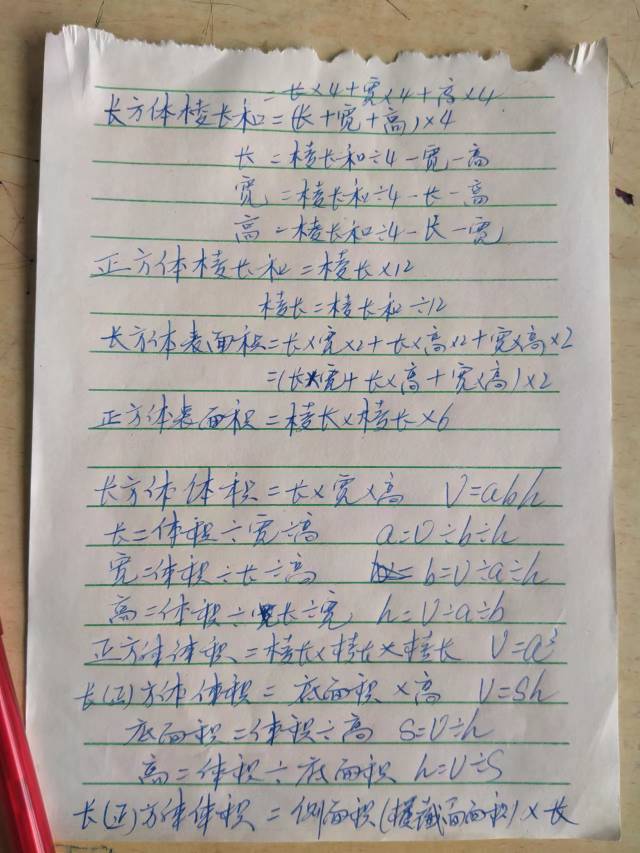 =长×4+宽×4+高×4
长方体棱长和=(长+宽+高)×4
长=棱长和÷4-宽-高
宽=棱长和÷4-长-高
高=棱长和÷4-长-宽
正方体棱长和=棱长×12
棱长=棱长和÷12
长方体表面积=长×宽×2+长×高×2+宽×高×2
=(长×宽+长×高+宽×高)×2
正方体表面积=棱长×棱长×6
长方体体积=长×宽×高 V=abh
长=体积÷宽÷高 a=V÷b÷h
宽=体积÷长÷高 b=V÷a÷h
高=体积÷长÷宽 h=V÷a÷b
正方体体积=棱长×棱长×棱长 V=a³
长(正)方体体积=底面积×高 V=Sh
底面积=体积÷高 S=V÷h
高=体积÷底面积 h=V÷S
长(正)方体体积=侧面积(横截面面积)×长